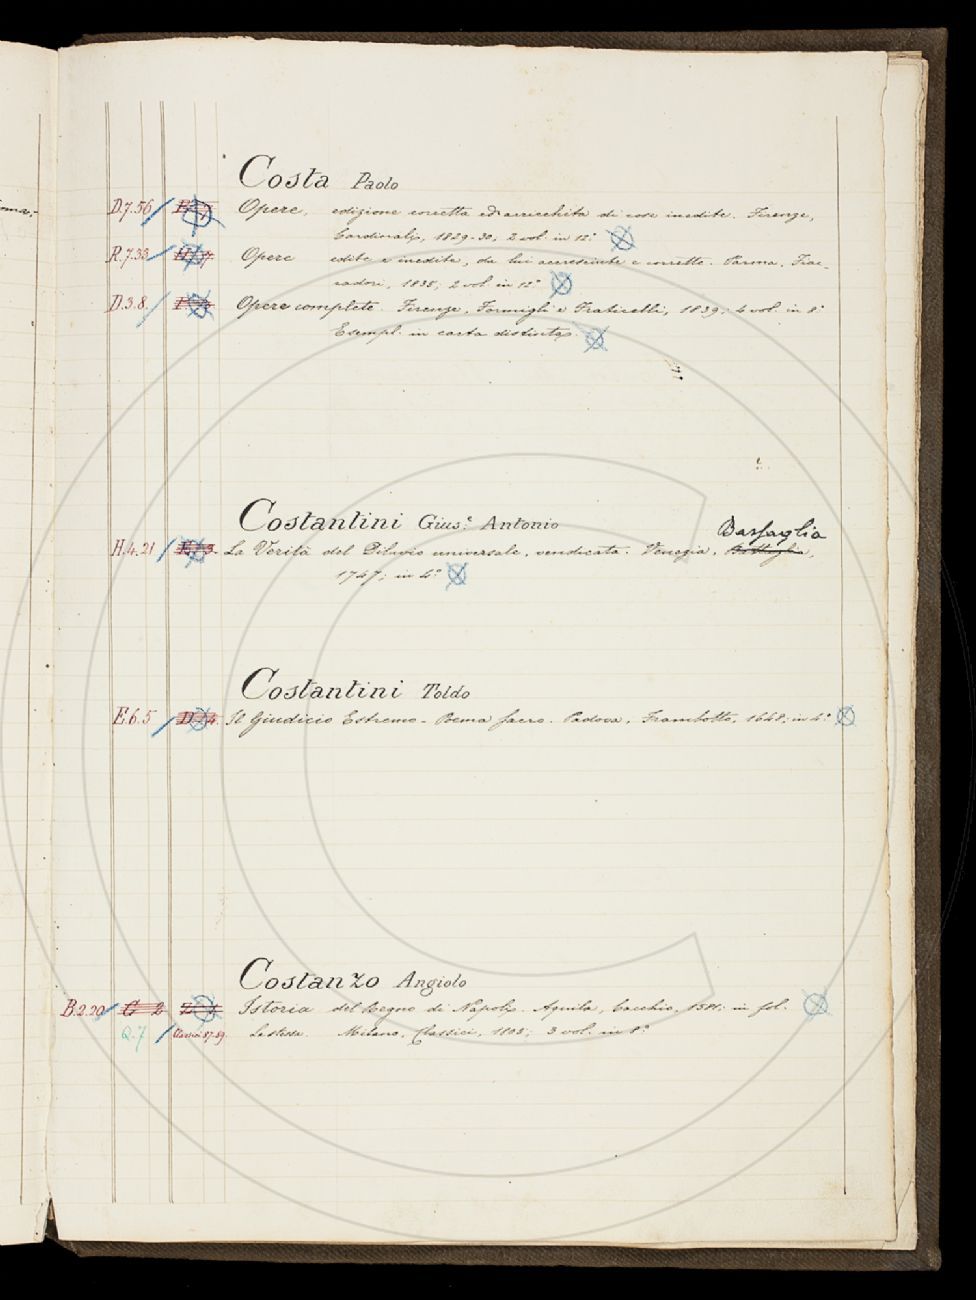 Costa Paolo
D.7.56 Opere, edizione corretta ed arricchita di cose inedite. Firenze,
Cardinali, 1829-30; 2 vol. in 12.°
R.7.33 Opere edite e inedite, da lui accresciute e corrette. Parma, Fiac-
cadori, 1835; 2 vol. in 12°
D.3.8. Opere complete. Firenze, Formigli e Fraticelli, 1839; 4 vol. in 8°
Esempl. in carta distinta.
Costantini Gius.e Antonio
Bassaglia
H.4.21 La Verità del Diluvio universale, vendicata. Venezia,
1747; in 4.°
Costantini Toldo
E.6.5 Il Giudicio Estremo - Poema sacro. Padova, Frambotto, 1648; in 4.°
Costanzo Angiolo
B.2.20 C 2 Istoria del Regno di Napoli. Aquila, Cacchio, 1581; in fol.
Q.7 Classici 87-89. La stessa. Milano, Classici, 1805; 3 vol. in 8°